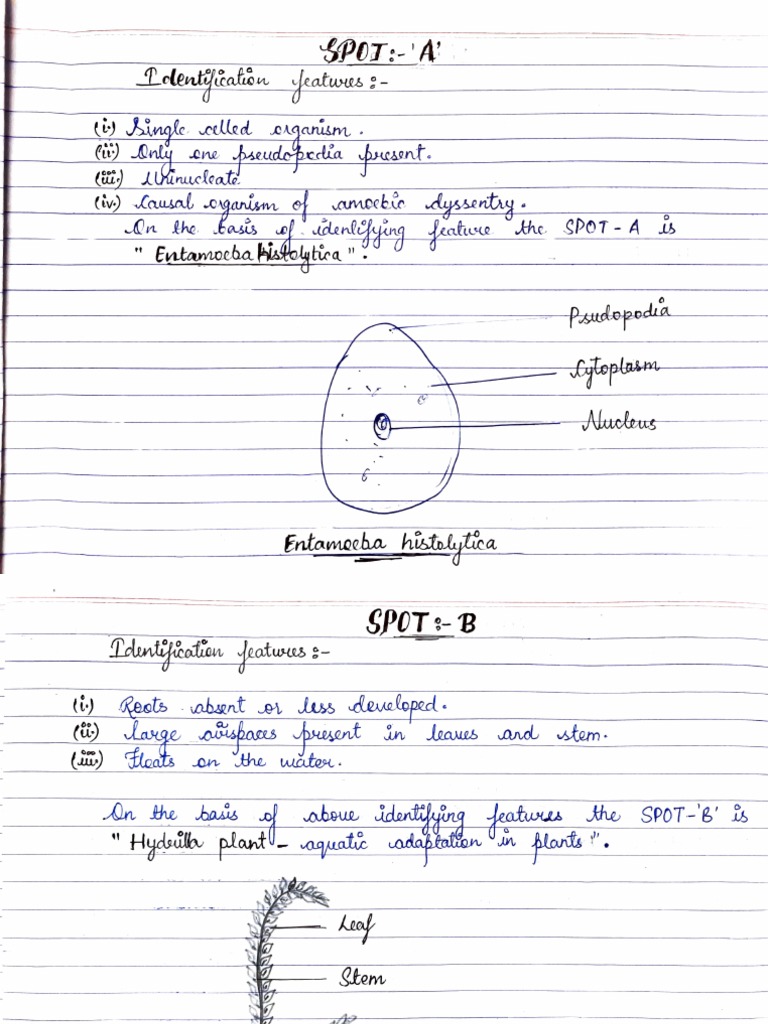 SPOT:- 'A'
Identification features:-
(i.) Single celled organism.
(ii.) Only one pseudopodia present.
(iii.) Uninucleate
(iv.) Causal organism of amoebic dyssentry.
On the basis of identifying feature the SPOT-A is
" Entamoeba histolytica".
Psudopodia
Cytoplasm
Nucleus
Entamoeba histolytica
SPOT:- B
Identification features:-
(i.) Roots absent or less developed.
(ii.) Large airspaces present in leaves and stem.
(iii.) Floats on the water.
On the basis of above identifying features the SPOT-'B' is
" Hydrilla plant - aquatic adaptation in plants".
Leaf
Stem